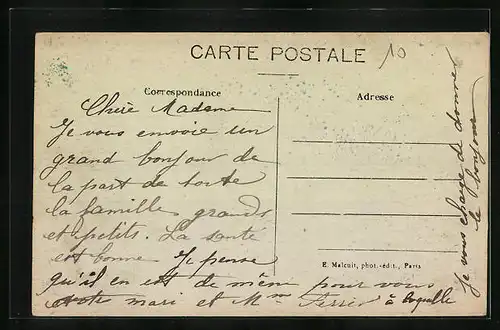 CARTE POSTALE
10
Correspondance
Adresse
Chère Madame
Je vous envoie un
grand bonjour de
la part de toute
la famille grands
et petits. La santé
est bonne Je pense
qu'il en est de même pour vous
votre mari et Mme Ferrer à laquelle
je vous charge de donner
le bonjour
E. Malcuit, phot.-édit., Paris